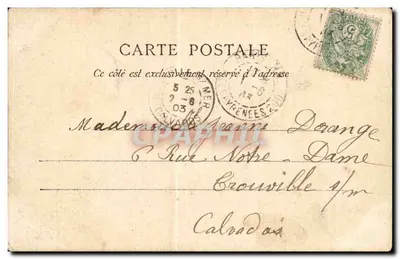 CARTE POSTALE
Ce côté est exclusivement réservé à l'adresse
MER
5 25
2 -6
03
CALVADOS
PYRENEES
CPAPHIL
Mademoiselle Jeanne Dorange
6 Rue Notre - Dame
Trouville s/m
Calvados